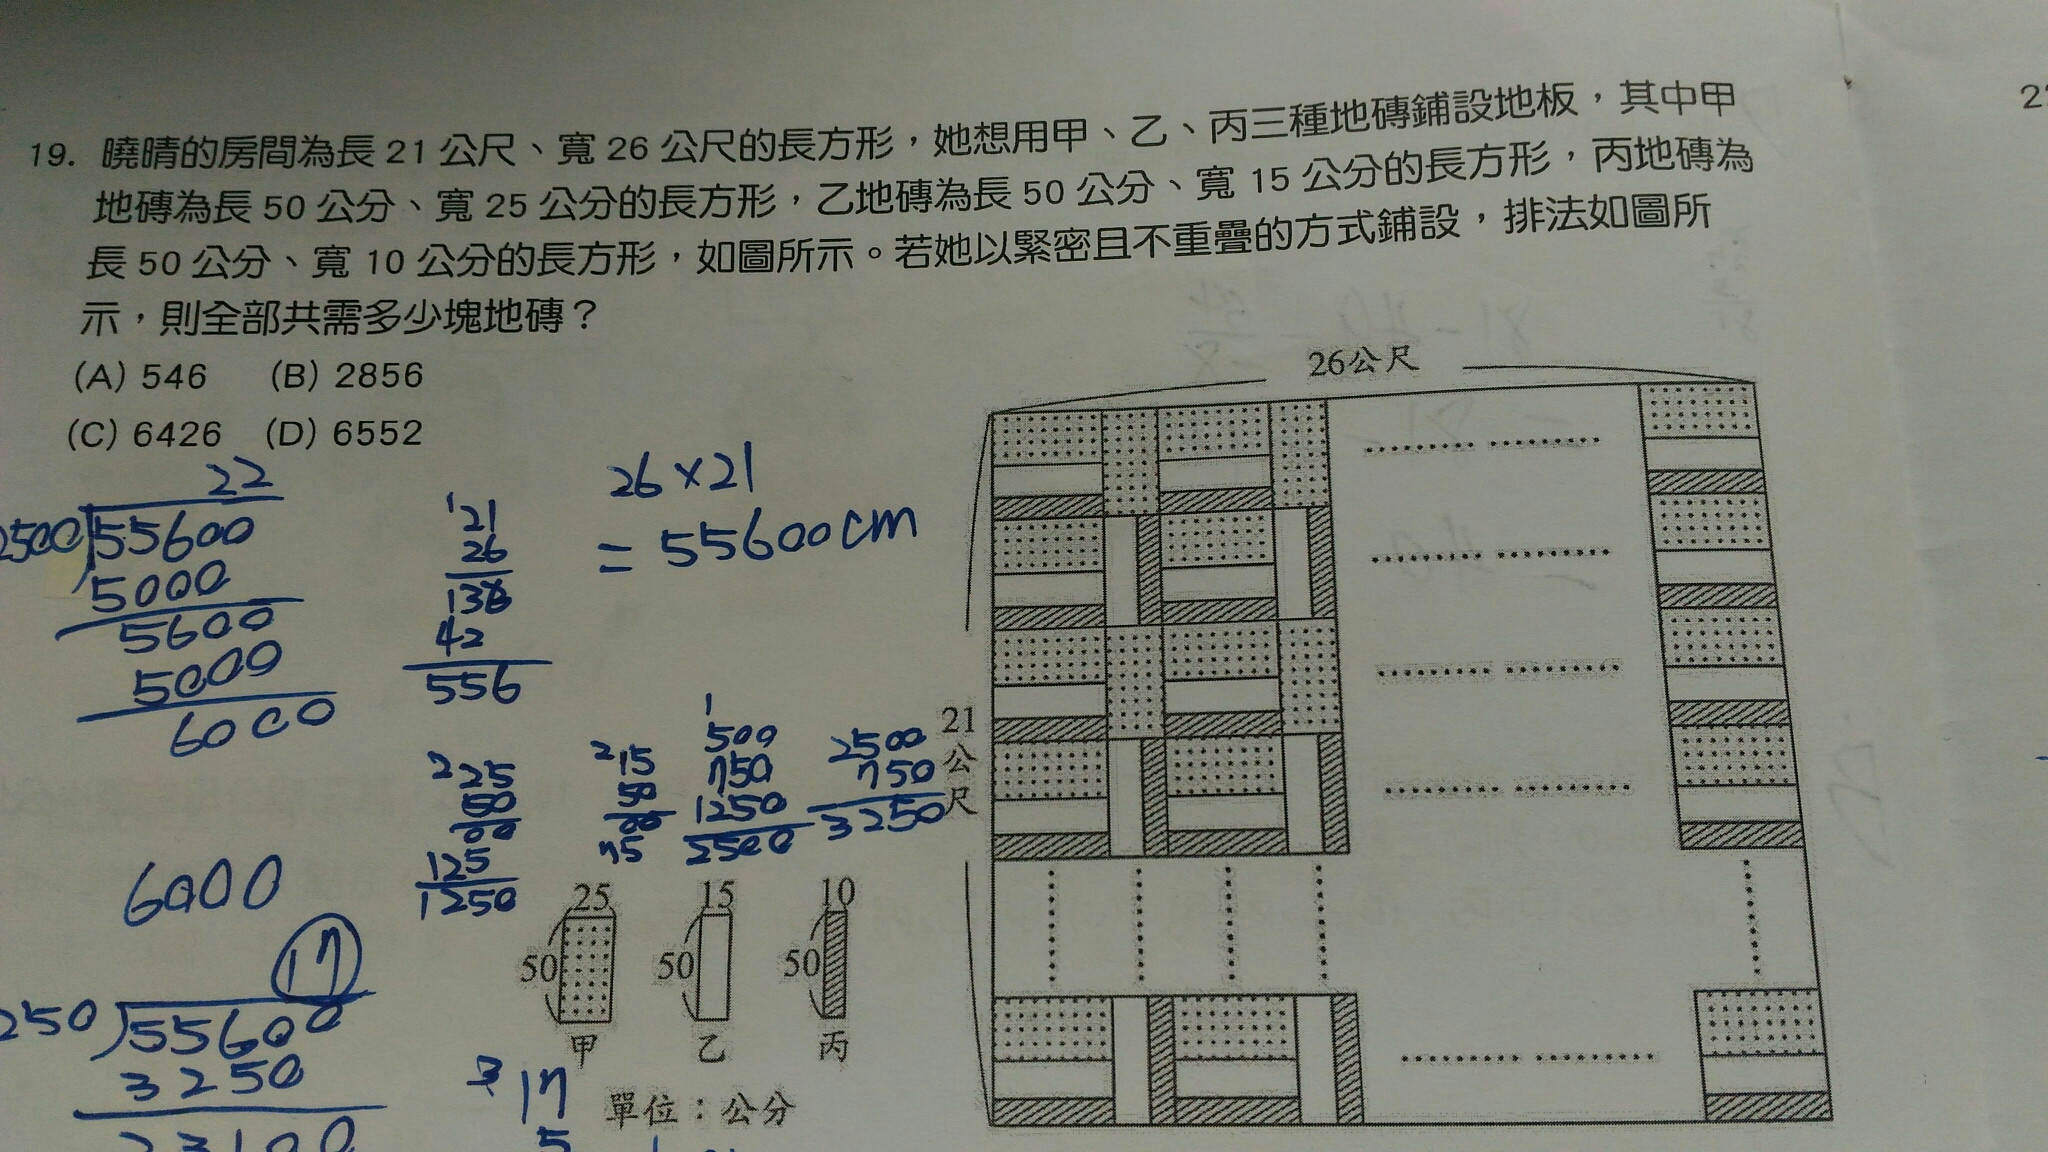 19. 曉晴的房間為長 21 公尺、寬 26 公尺的長方形，她想用甲、乙、丙三種地磚鋪設地板，其中甲
地磚為長 50 公分、寬 25 公分的長方形，乙地磚為長 50 公分、寬 15 公分的長方形，丙地磚為
長 50 公分、寬 10 公分的長方形，如圖所示。若她以緊密且不重疊的方式鋪設，排法如圖所
示，則全部共需多少塊地磚？
(A) 546 (B) 2856
(C) 6426 (D) 6552
26公尺
21
公
尺
22
2500 55600
5000
5600
5000
6000
21
26
42
556
26×21
= 55600cm
25
50
00
125
1250
15
50
00
75
500
750
1250
2500
2500
750
3250
6000
17
250 55600
3250
17
5
25
50
甲
15
50
乙
10
50
丙
單位：公分